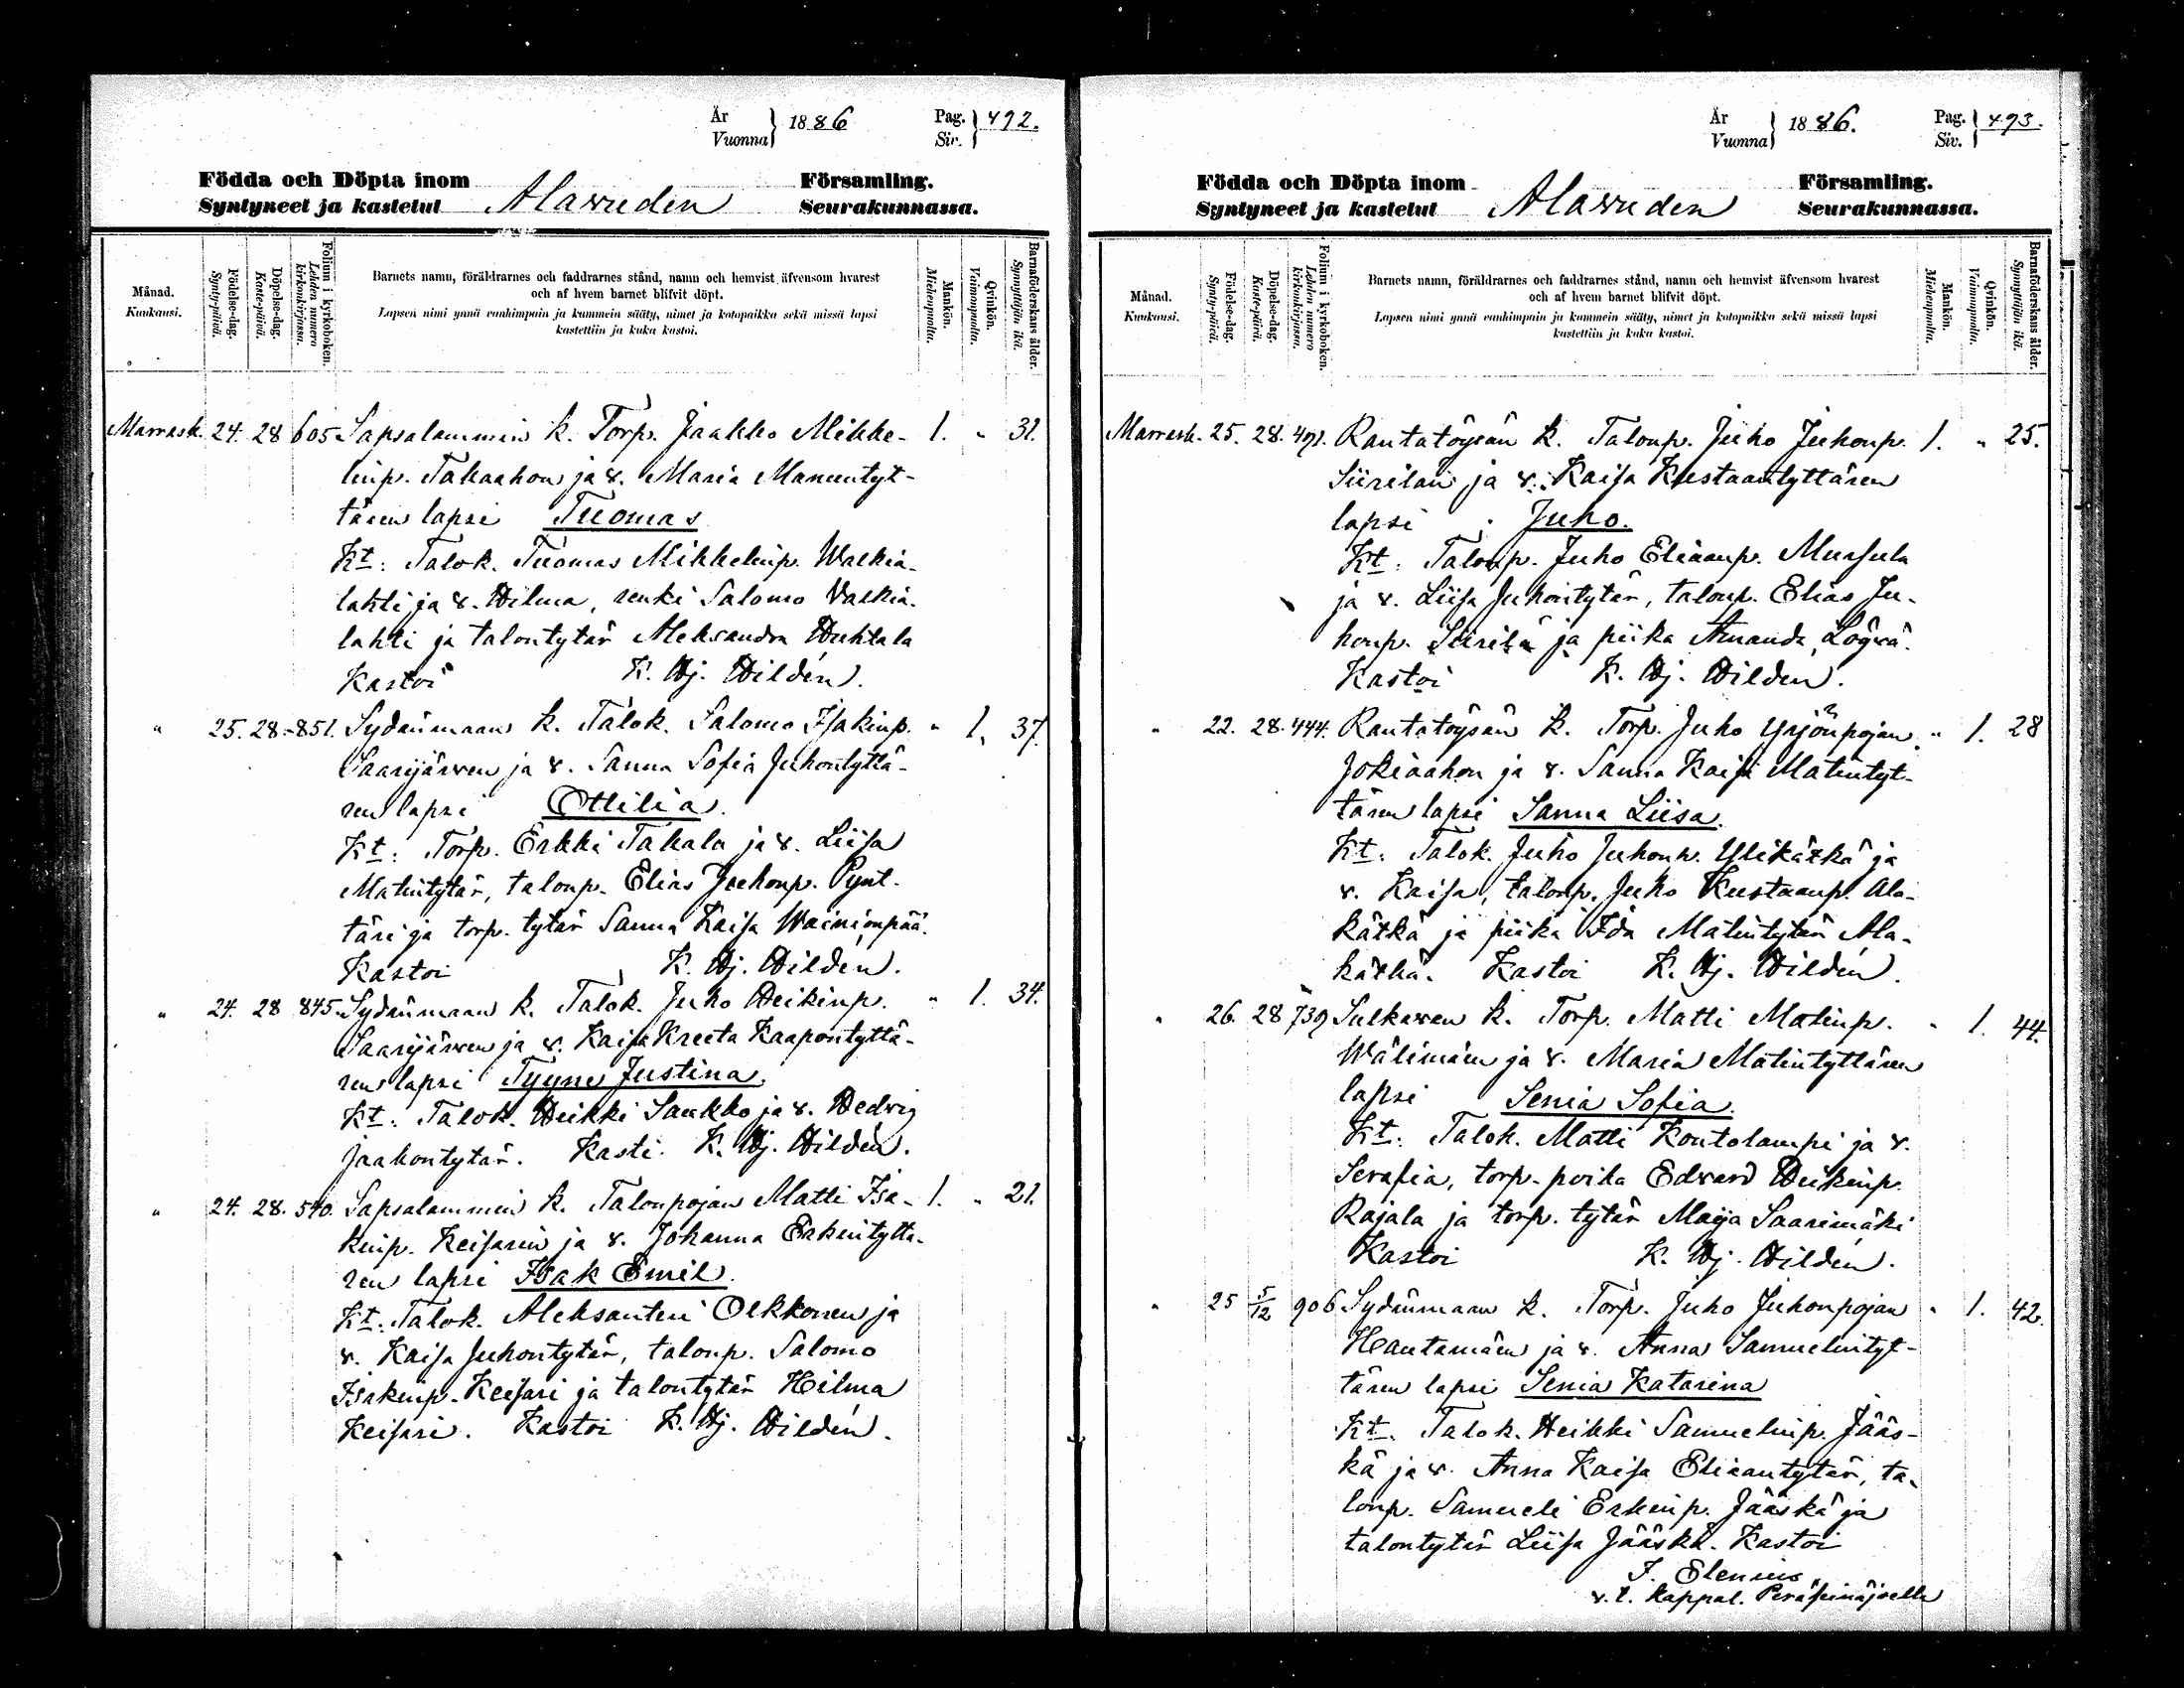 År
Vuonna } 1886
Pag.
Siv. } 492.
Födda och Döpta inom
Syntyneet ja kastetut
Alawuden
Församling.
Seurakunnassa.
Månad.
Kuukausi.
Födelse-dag.
Synty-päivä.
Döpelse-dag.
Kaste-päivä.
Folium i kyrkoboken.
Lehden numero kirkonkirjassa.
Barnets namn, föräldrarnes och faddrarnes stånd, namn och hemvist äfvensom hvarest
och af hvem barnet blifvit döpt.
Lapsen nimi ynnä vanhimpain ja kummein sääty, nimet ja kotopaikka sekä missä lapsi
kastettiin ja kuka kastoi.
Mankön.
Miehenpuolta.
Qvinkön.
Vaimonpuolta.
Barnaföderskans ålder.
Synnyttäjän ikä.
Marrask. 24. 28 605 Sapsalammin k. Torp. Jaakko Mikke- 1. " 31.
linp. Takaahon ja v. Maria Manuntyt-
tären lapsi Tuomas
Kt: Talok. Tuomas Mikkelinp. Walkia-
lahti ja v. Hilma, renki Salomo Valkia-
lahti ja talontytär Aleksandra Huhtala
Kastoi K. Hj. Hildén.
" 25. 28. 851. Sydänmaan k. Talok. Salomo Isakinp. " 1. 37.
Saarijärwen ja v. Sanna Sofia Juhontyttä-
ren lapsi Ottilia.
Kt: Torp. Erkki Takala ja v. Liisa
Matintytär, talonp. Elias Juhonp. Pynt-
täri ja torp. tytär Sanna Kaisa Wainionpää.
Kastoi K. Hj. Hildén.
" 24. 28 845. Sydänmaan k. Talok. Juho Heikinp. " 1. 34.
Saarijärwen ja v. Kaisa Kreeta Kaapontyttä-
ren lapsi Tyyne Justina.
Kt: Talok. Heikki Saukko ja v. Hedvig
Jaakontytär. Kasti. K. Hj. Hildén.
" 24. 28. 540. Sapsalammin k. Talonpojan Matti Isa- 1. " 21.
kinp. Keisarin ja v. Johanna Erkintyttä-
ren lapsi Isak Emil.
Kt: Talok. Aleksanteri Olkkonen ja
v. Kaisa Juhontytär, talonp. Salomo
Isakinp. Keisari ja talontytär Hilma
Keisari. Kastoi K. Hj. Hildén.
År
Vuonna } 1886.
Pag.
Siv. } 493.
Födda och Döpta inom
Syntyneet ja kastetut
Alawuden
Församling.
Seurakunnassa.
Månad.
Kuukausi.
Födelse-dag.
Synty-päivä.
Döpelse-dag.
Kaste-päivä.
Folium i kyrkoboken.
Lehden numero kirkonkirjassa.
Barnets namn, föräldrarnes och faddrarnes stånd, namn och hemvist äfvensom hvarest
och af hvem barnet blifvit döpt.
Lapsen nimi ynnä vanhimpain ja kummein sääty, nimet ja kotopaikka sekä missä lapsi
kastettiin ja kuka kastoi.
Mankön.
Miehenpuolta.
Qvinkön.
Vaimonpuolta.
Barnaföderskans ålder.
Synnyttäjän ikä.
Marrask. 25. 28. 491. Rantatöysän k. Talonp. Juho Juhonp. 1. " 25.
Siirilän ja v. Kaisa Kustaantyttären
lapsi Juho.
Kt: Talonp. Juho Eliaanp. Mursula
ja v. Liisa Juhontytär, talonp. Elias Ju-
honp. Siirilä ja piika Amanda Löywä.
Kastoi K. Hj. Hildén.
" 22. 28. 444. Rantatöysän k. Torp. Juho Yrjönpojan " 1. 28
Jokiaahon ja v. Sanna Kaisa Matintyt-
tären lapsi Sanna Liisa.
Kt: Talok. Juho Juhonp. Ylikätkä ja
v. Kaisa, talonp. Juho Kustaanp. Ala-
kätkä ja piika Ida Matintytär Ala-
kätkä. Kastoi K. Hj. Hildén.
" 26. 28 739 Sulkawan k. Torp. Matti Matinp. " 1. 44.
Wälimäen ja v. Maria Matintyttären
lapsi Senia Sofia.
Kt: Talok. Matti Kontolampi ja v.
Serafia, torp. poika Edvard Heikinp.
Rajala ja torp. tytär Maija Saarimäki
Kastoi K. Hj. Hildén.
" 25 5/12 906 Sydänmaan k. Torp. Juho Juhonpojan " 1. 42.
Hautamäen ja v. Anna Samuelintyt-
tären lapsi Senia Katarina
Kt: Talok. Heikki Samuelinp. Jääs-
kä ja v. Anna Kaisa Eliaantytär, ta-
lonp. Samueli Erkinp. Jääskä ja
talontytär Liisa Jääskä. Kastoi
J. Elenius,
v. t. kappal. Peräseinäjoella